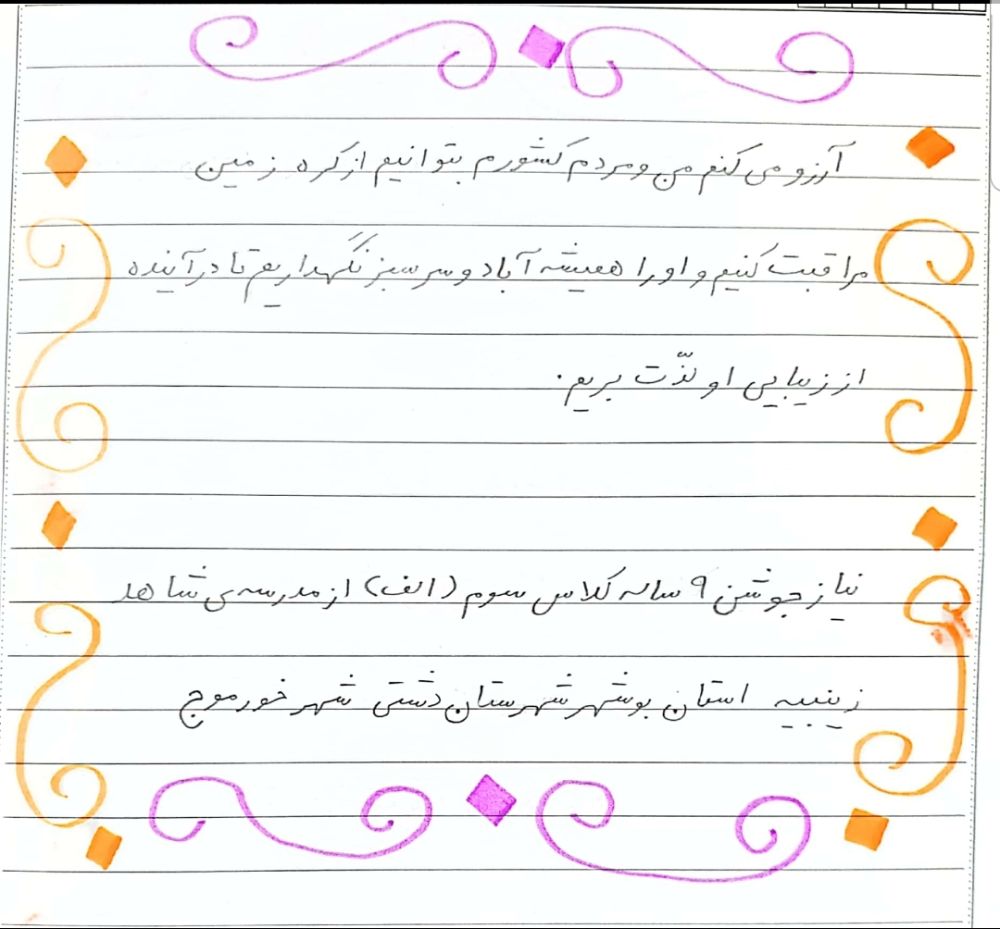 آرزو می کنم من و مردم کشورم بتوانیم از کره زمین
مراقبت کنیم و او را همیشه آباد و سرسبز نگهداریم تا در آینده
از زیبایی او لذّت بریم.
نیاز جوشن ۹ ساله کلاس سوم (الف) از مدرسه ی شاهد
زینبیه استان بوشهر شهرستان دشتی شهر خورموج